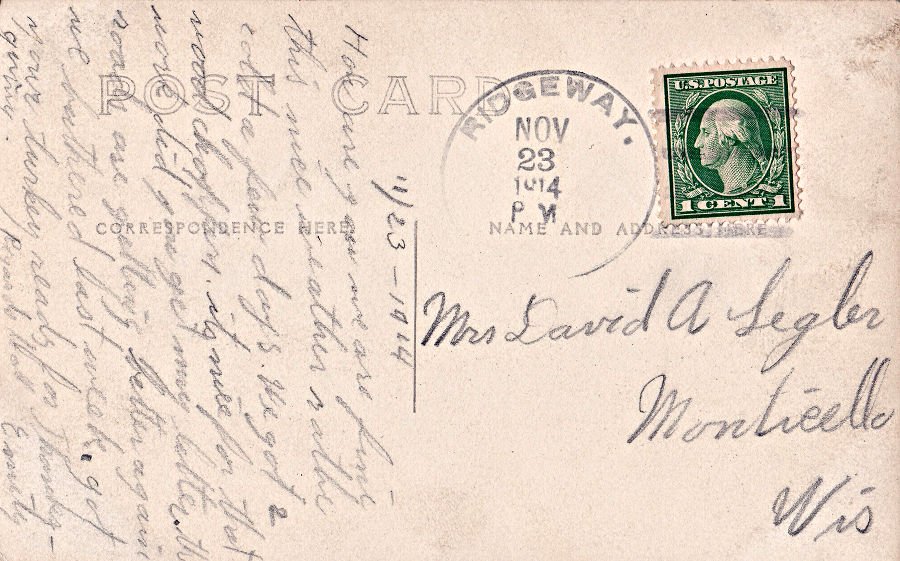 POST CARD
CORRESPONDENCE HERE
NAME AND ADDRESS HERE
RIDGEWAY.
NOV
23
1914
P M
U.S. POSTAGE
1 CENT 1
Mrs David A Legler
Monticello
Wis
11/23-1914
How are you we are fine
this nice weather rathe
cold a few days. We got 2
wood choppers. its nice for that
work did you get my letter. the
roads are getting better again
we butchered last week. got
your turkey ready for Thanks-
giving.